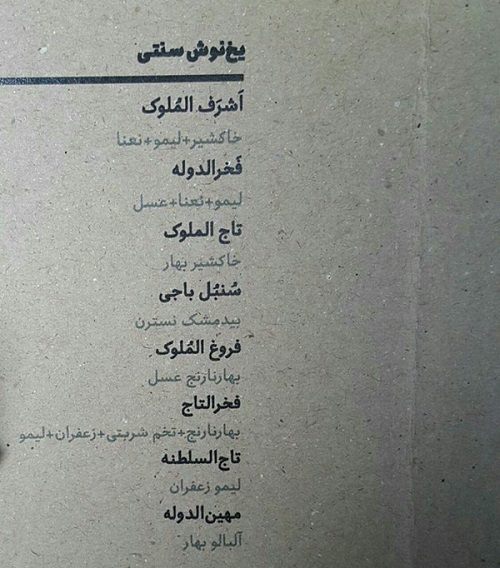 یخ‌نوش سنتی
اَشرَف المُلوک
خاکشیر+لیمو+نعنا
فَخرالدوله
لیمو+نعنا+عسل
تاج الملوک
خاکشیر بهار
سُنبُل باجی
بیدمشک نسترن
فروغ المُلوک
بهارنارنج عسل
فخرالتاج
بهارنارنج+تخم شربتی+زعفران+لیمو
تاج‌السلطنه
لیمو زعفران
مهین‌الدوله
آلبالو بهار